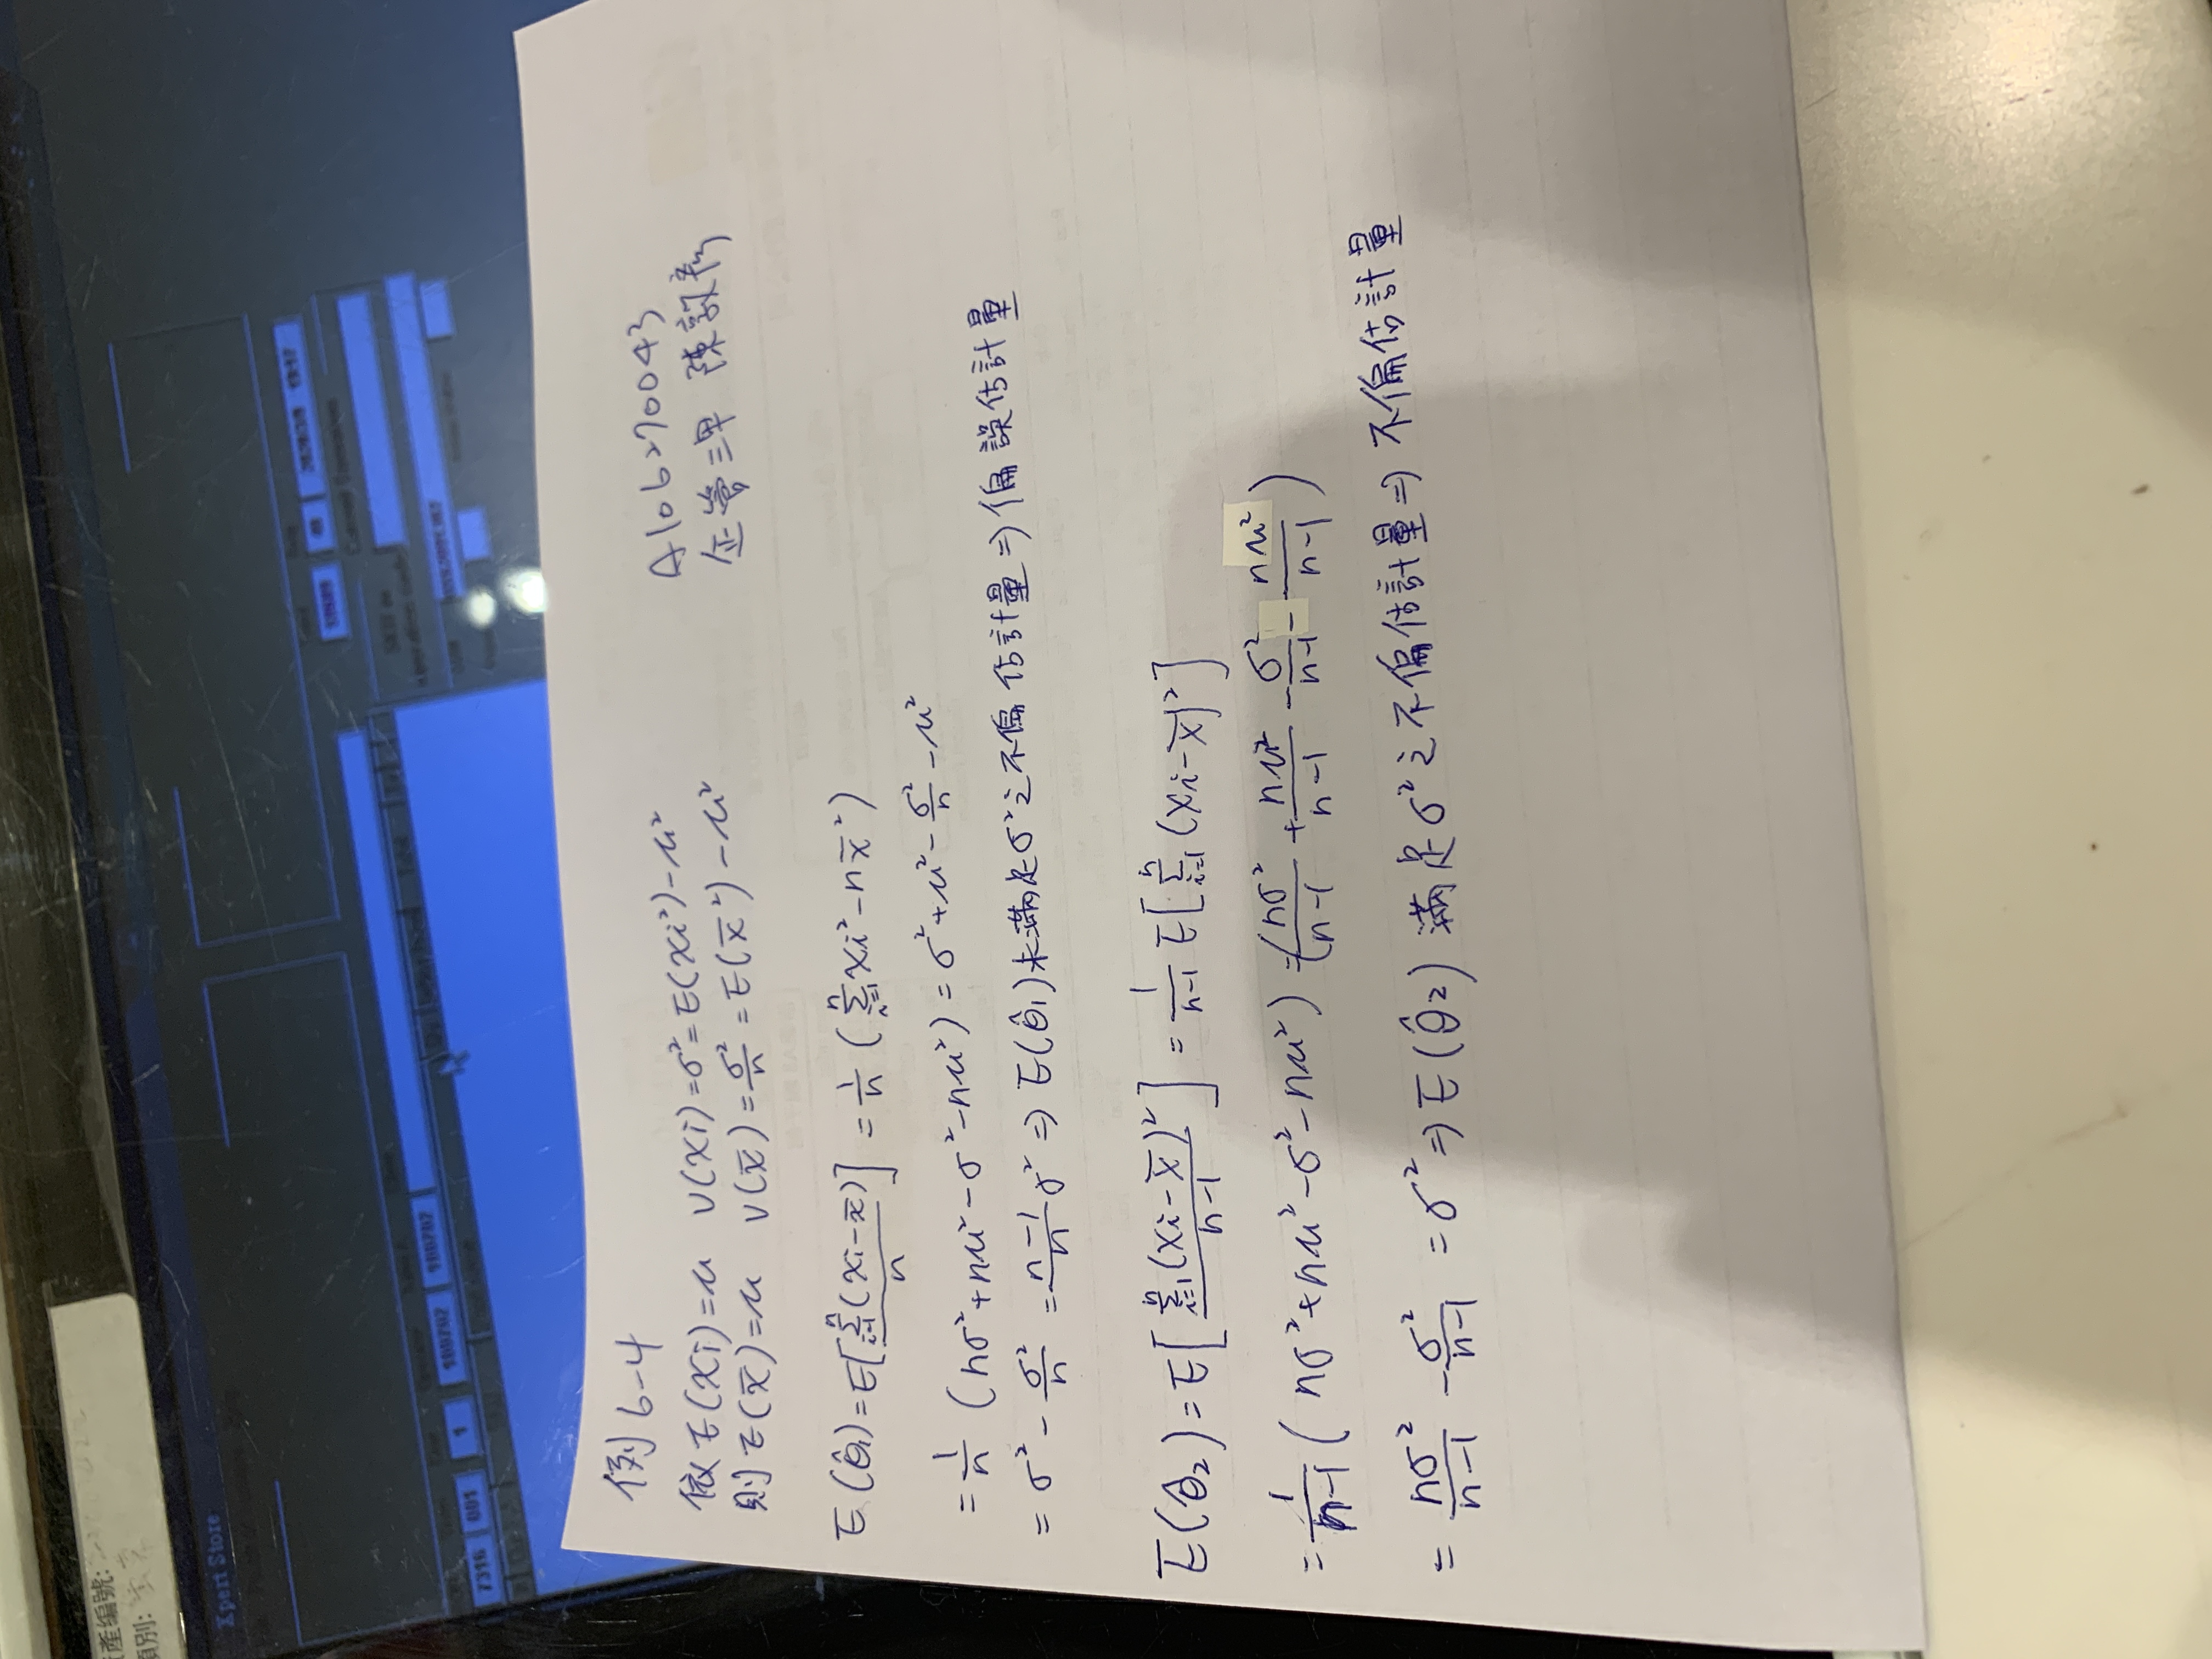 資產編號:
類別:
Xpert Store
7316 001 1 180707 180707
例 6-4
A106270043
企管三甲 陳敦彥
依 E(Xi)=μ V(Xi)=σ²=E(Xi²)-μ²
則 E(x̄)=μ V(x̄)=σ²/n=E(x̄²)-μ²
E(θ̂₁)=E[Σᵢ₌₁ⁿ(Xi-x̄)/n]=1/n(Σᵢ₌₁ⁿXi²-nx̄²)
=1/n(nσ²+nμ²-σ²-nμ²)=σ²+μ²-σ²/n-μ²
=σ²-σ²/n=n-1/n σ²⇒E(θ̂₁)未滿足σ²之不偏估計量⇒偏誤估計量
E(θ̂₂)=E[Σᵢ₌₁ⁿ(Xi-x̄)²/n-1]=1/n-1 E[Σᵢ₌₁ⁿ(Xi-x̄)²]
=1/n-1(nσ²+nμ²-σ²-nμ²)=(nσ²/n-1+nμ²/n-1-σ²/n-1-nμ²/n-1)
=nσ²/n-1-σ²/n-1=σ²⇒E(θ̂₂)滿足σ²之不偏估計量⇒不偏估計量